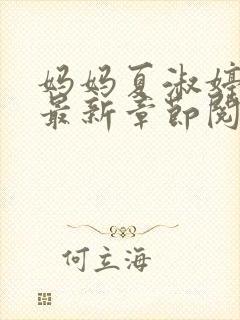 妈妈夏淑婷
最新章节阅
何立海